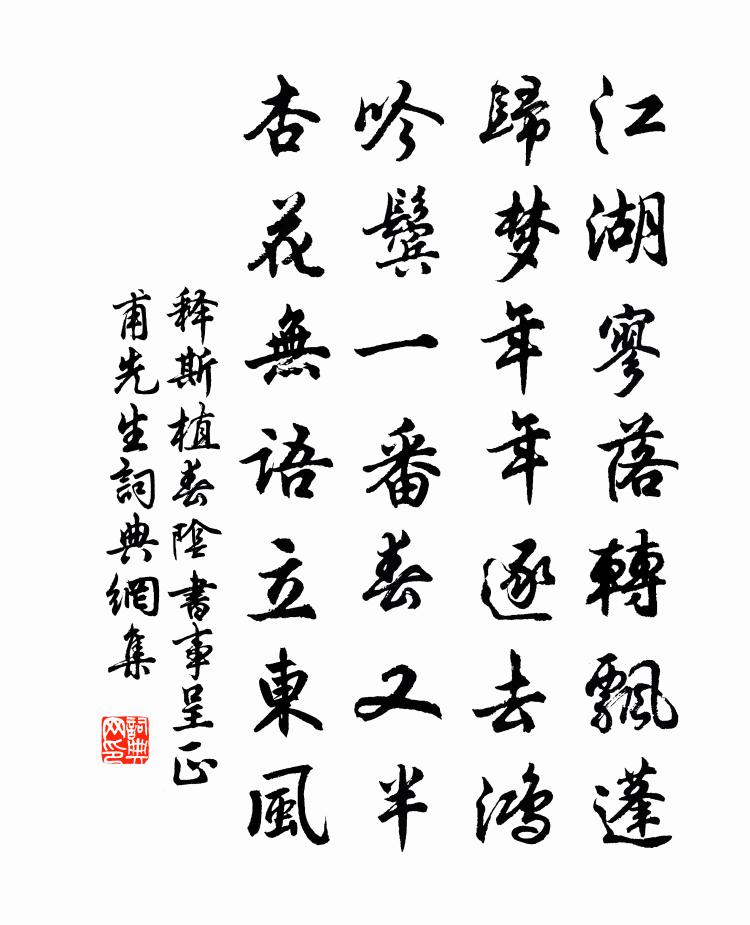 江湖寥落轉飄蓬
歸梦年年逐去鴻
吟鬢一番春又半
杏花無語立東風
释斯植春陰書事呈正
甫先生詞典網集
詞典網印